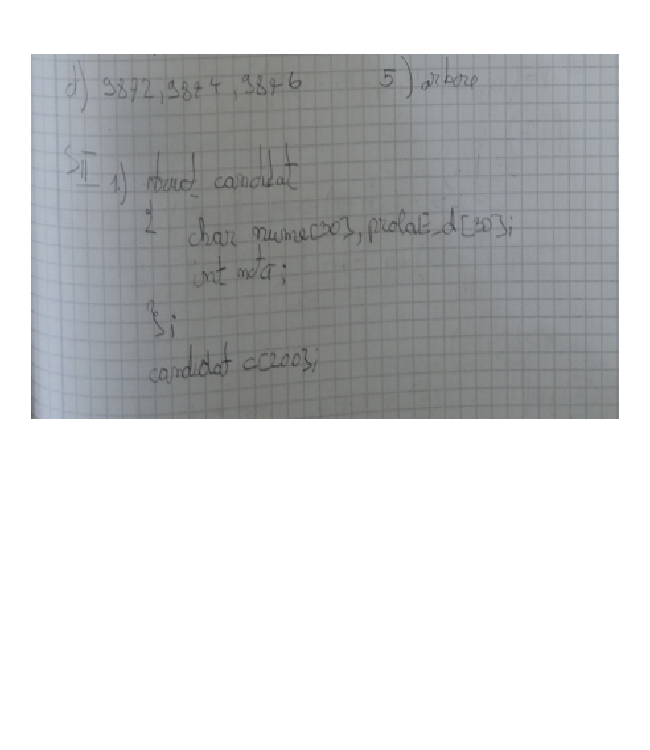 d) 9872, 9874, 9876 5) arbore
SII 1.) struct candidat
{ char nume[30], probaE_d[30];
int nota;
};
candidat c[200];